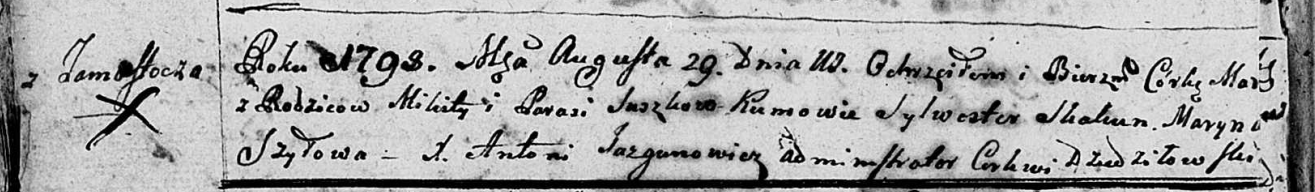 z Zamostocza
Roku 1793. Msca Augusta 29. Dnia W. Ochrzciłem i Bierzm Córkę
z Rodzicow Mikity i Parasi Suszkow Kumowie Sylwester Skakun. Maryna
Szyłowa – X. Antoni Jazgunowicz Administrator Cerkwi Dziedziłow ski